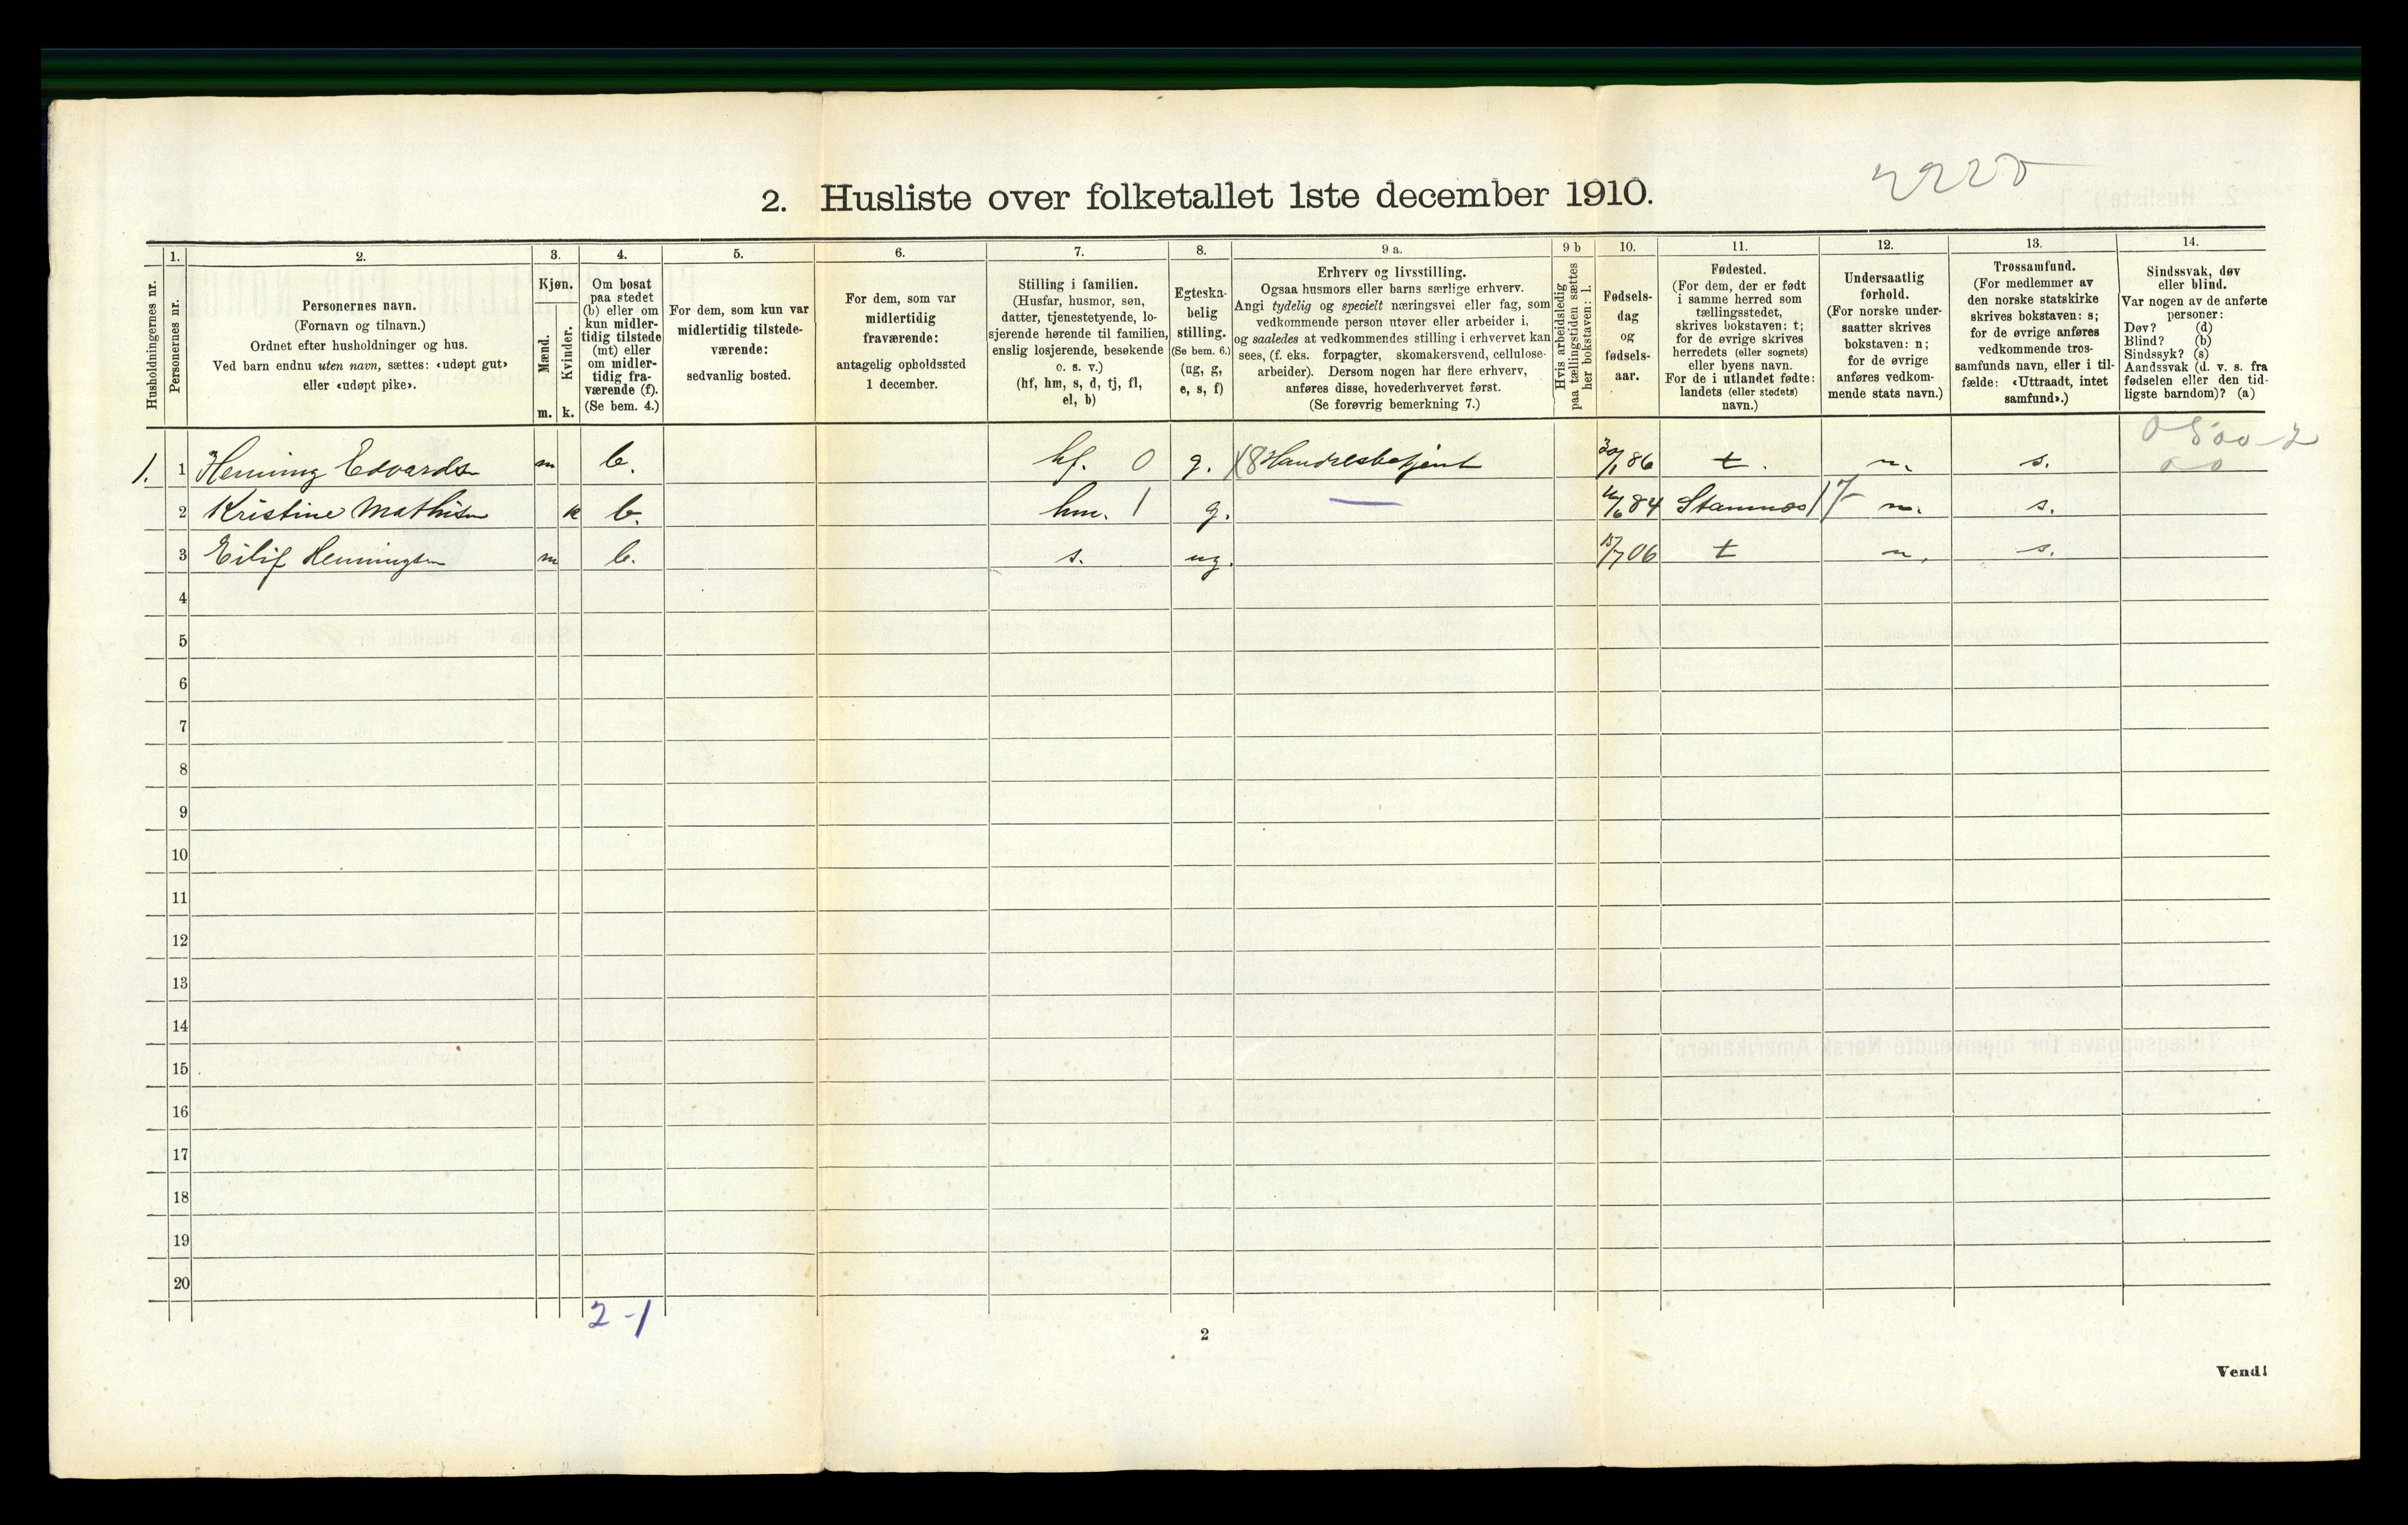 2220
2. Husliste over folketallet 1ste december 1910.
Husholdningernes nr.
1.
Personernes nr.
2.
Personernes navn.
(Fornavn og tilnavn.)
Ordnet efter husholdninger og hus.
Ved barn endnu uten navn, sættes: «udøpt gut»
eller «udøpt pike».
3.
Kjøn.
Mænd.
Kvinder.
m. k.
4.
Om bosat
paa stedet
(b) eller om
kun midler-
tidig tilstede
(mt) eller
om midler-
tidig fra-
værende (f).
(Se bem. 4.)
5.
For dem, som kun var
midlertidig tilstede-
værende:
sedvanlig bosted.
6.
For dem, som var
midlertidig
fraværende:
antagelig opholdssted
1 december.
7.
Stilling i familien.
(Husfar, husmor, søn,
datter, tjenestetyende, lo-
sjerende hørende til familien,
enslig losjerende, besøkende
o. s. v.)
(hf, hm, s, d, tj, fl,
el, b)
8.
Egteska-
belig
stilling.
(Se bem. 6.)
(ug, g,
e, s, f)
9 a.
Erhverv og livsstilling.
Ogsaa husmors eller barns særlige erhverv.
Angi tydelig og specielt næringsvei eller fag, som
vedkommende person utøver eller arbeider i,
og saaledes at vedkommendes stilling i erhvervet kan
sees, (f. eks. forpagter, skomakersvend, cellulose-
arbeider). Dersom nogen har flere erhverv,
anføres disse, hovederhvervet først.
(Se forøvrig bemerkning 7.)
9 b
Hvis arbeidsledig
paa tællingstiden sættes
her bokstaven: l.
10.
Fødsels-
dag
og
fødsels-
aar.
11.
Fødested.
(For dem, der er født
i samme herred som
tællingsstedet,
skrives bokstaven: t;
for de øvrige skrives
herredets (eller sognets)
eller byens navn.
For de i utlandet fødte:
landets (eller stedets)
navn.)
12.
Undersaatlig
forhold.
(For norske under-
saatter skrives
bokstaven: n;
for de øvrige
anføres vedkom-
mende stats navn.)
13.
Trossamfund.
(For medlemmer av
den norske statskirke
skrives bokstaven: s;
for de øvrige anføres
vedkommende tros-
samfunds navn, eller i til-
fælde: «Uttraadt, intet
samfund».)
14.
Sindssvak, døv
eller blind.
Var nogen av de anførte
personer:
Døv? (d)
Blind? (b)
Sindssyk? (s)
Aandssvak (d. v. s. fra
fødselen eller den tid-
ligste barndom)? (a)
0500-2
00
1. 1 Henning Edvardsen m b. hf. 0 g. X8 Handelsbetjent 30/1 86 t. n. s.
2 Kristine Mathisen k b. hm. 1 g. — /6 84 Stamnæs 17 n. s.
3 Eilif Henningsen m b. s. ug. 15/7 06 t n. s.
4
5
6
7
8
9
10
11
12
13
14
15
16
17
18
19
20
2-1
2
Vend!